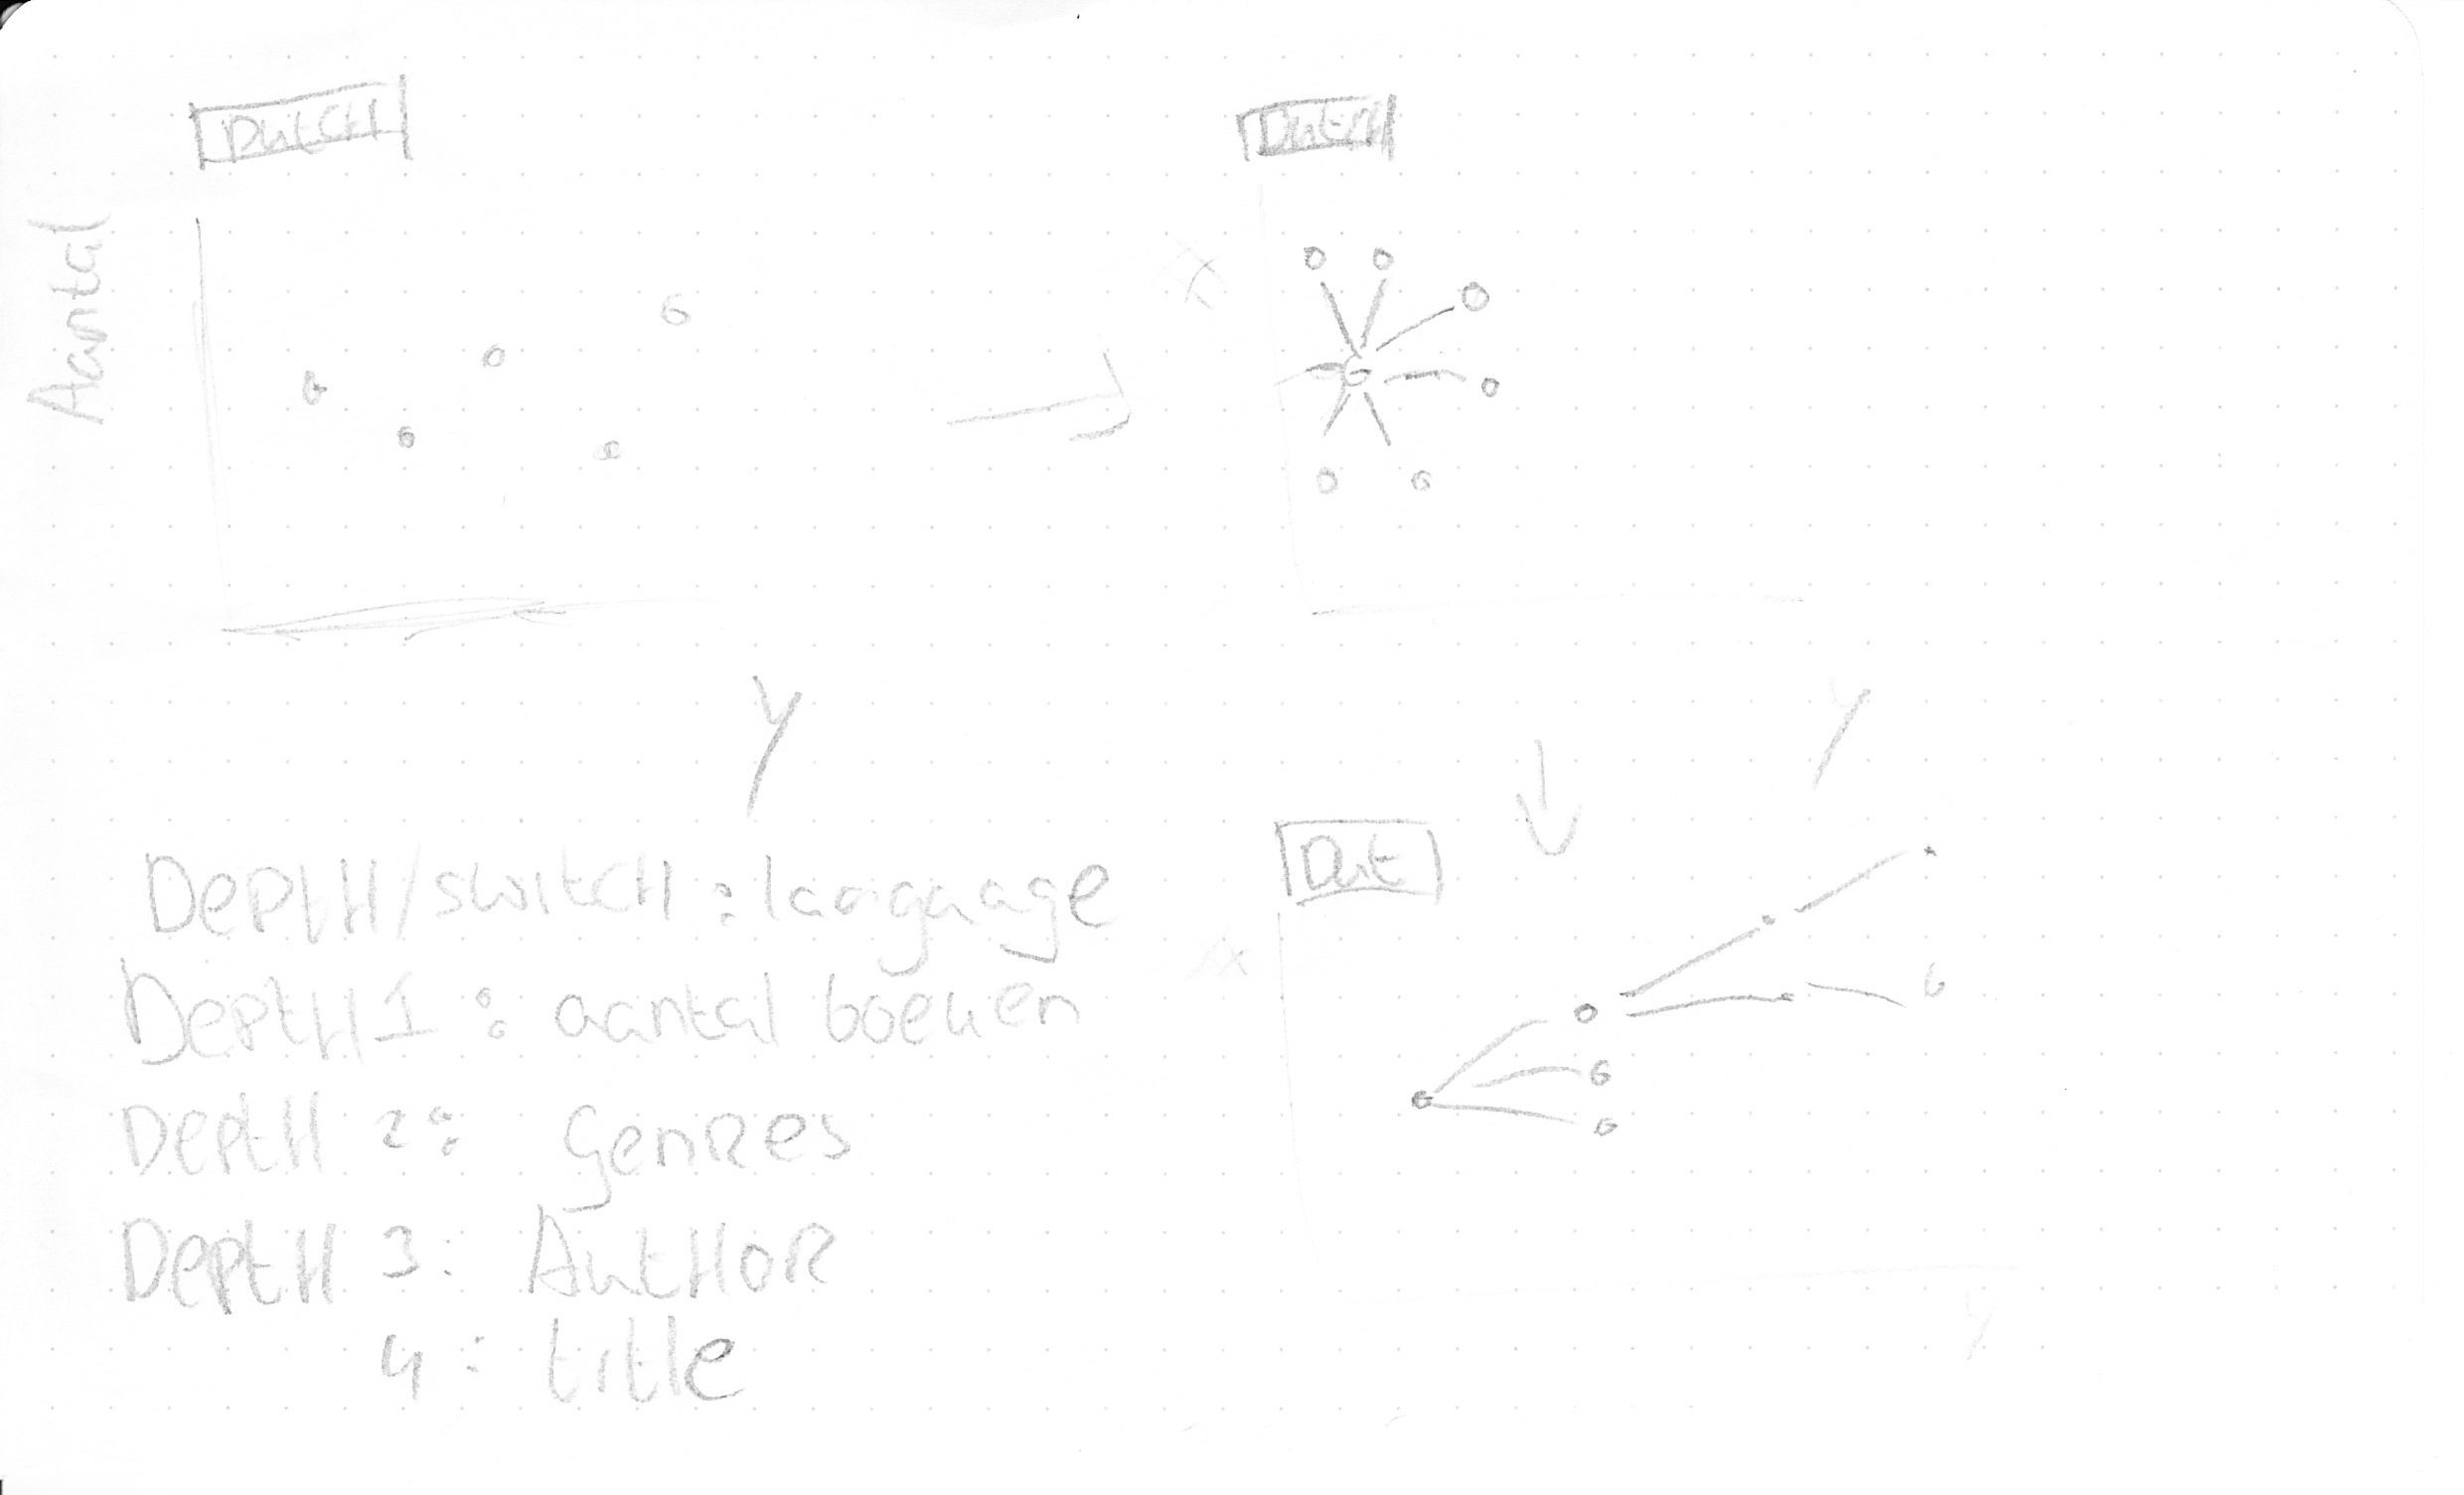 DUTCH
Dutch
Aantal
X
Y
Y
Dut
X
Y
DEPtH/switCH : language
DEPtH 1 : aantal boeken
DEPtH 2 : GenRes
DEPtH 3 : AutHoR
4 : title